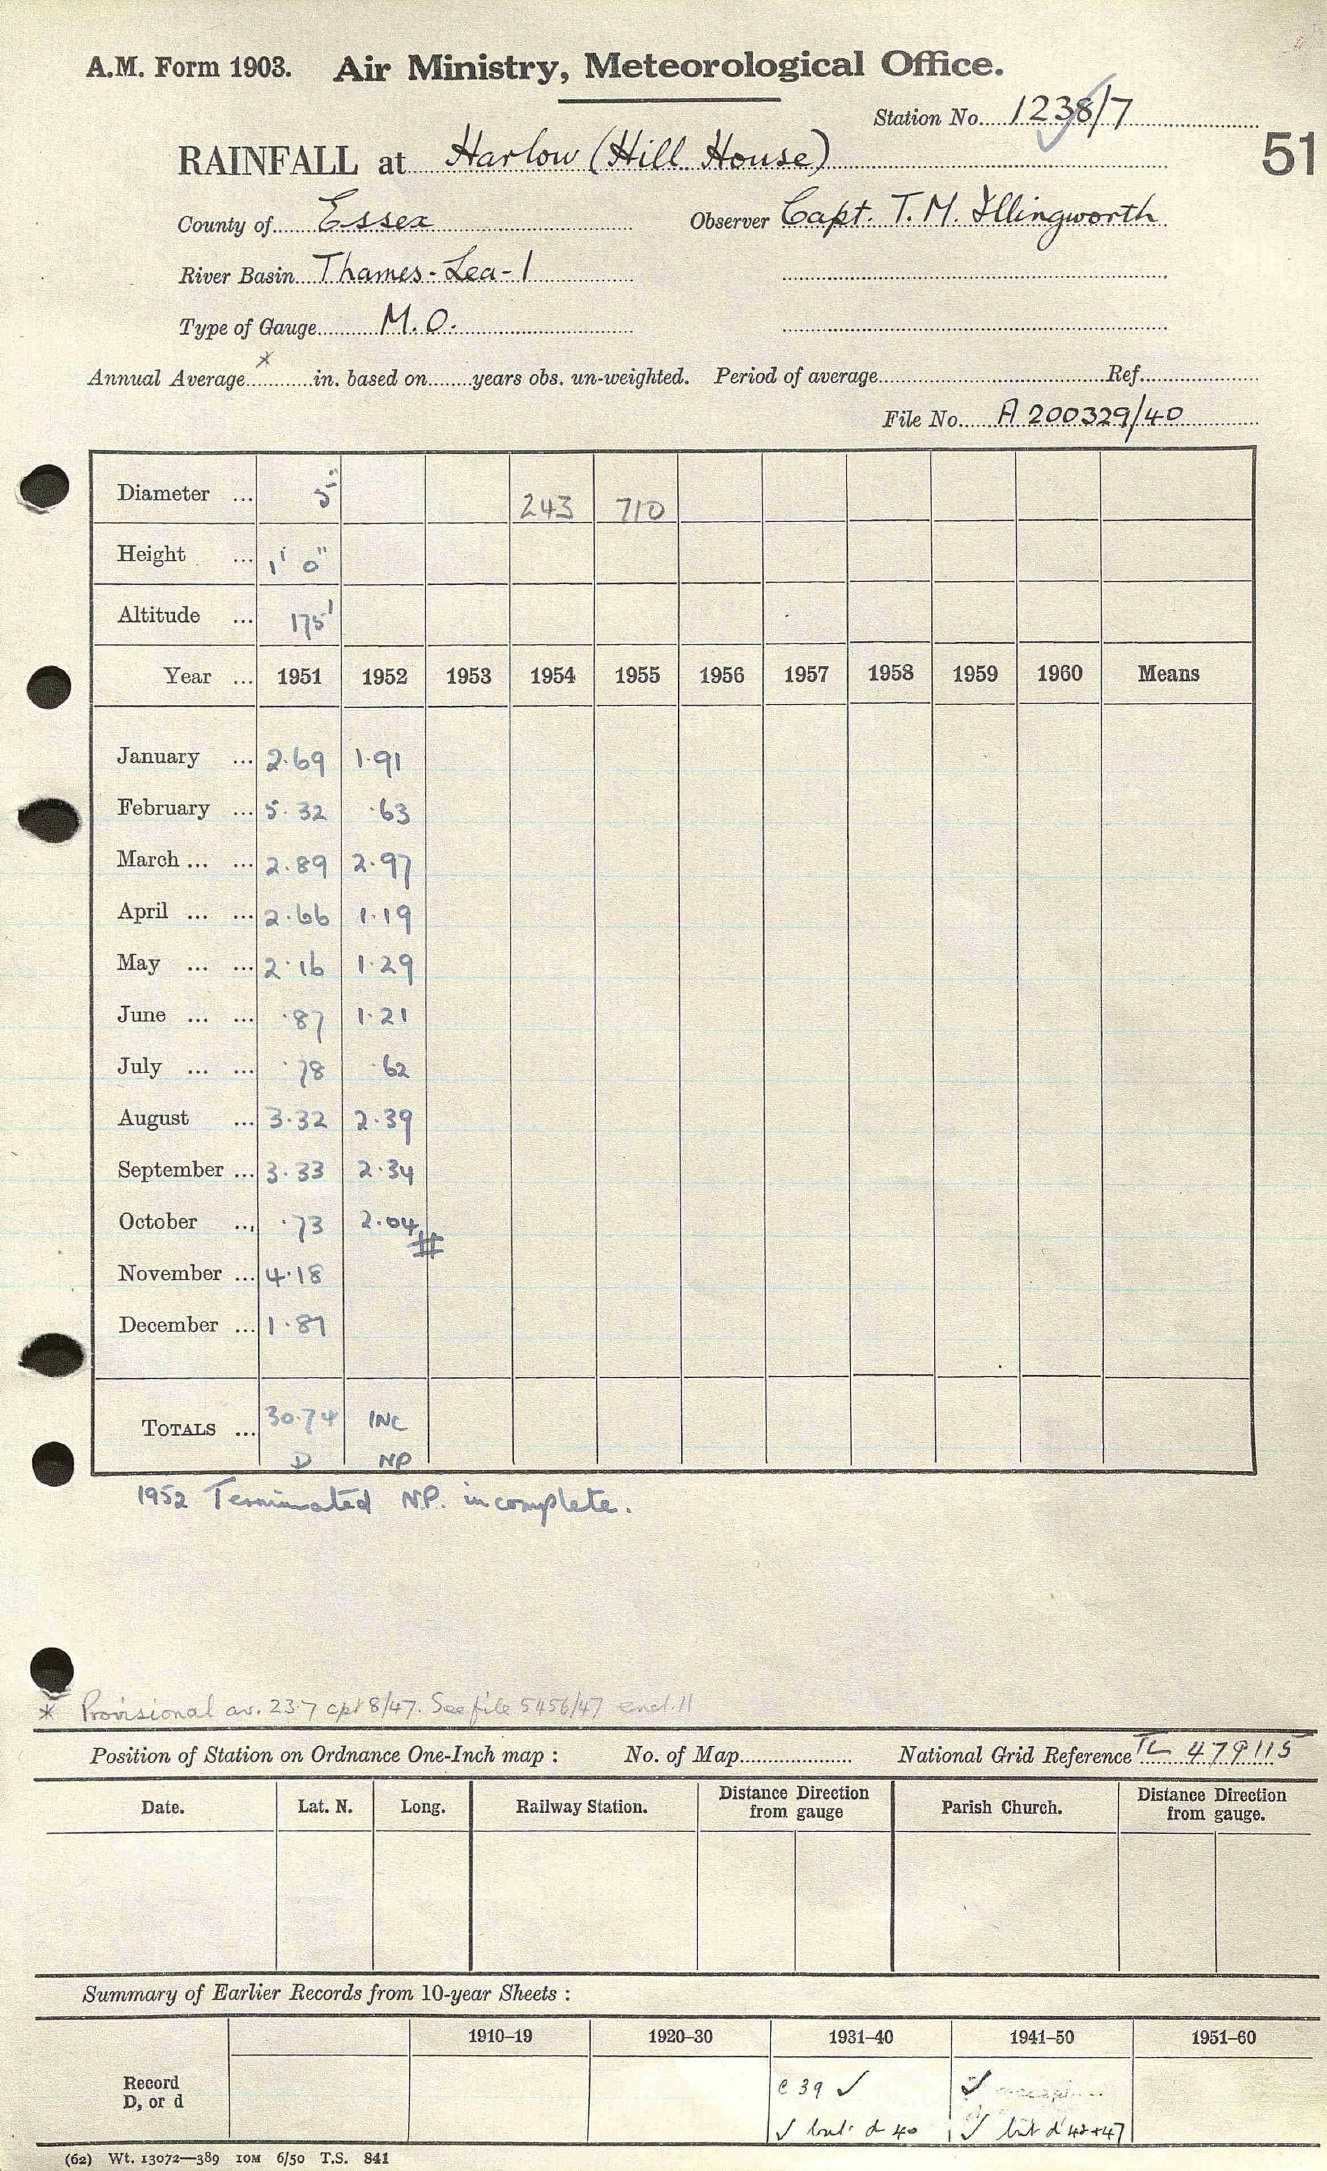 A.M. Form 1903. Air Ministry, Meteorological Office.
Station No. 1238/7
51
RAINFALL at Harlow (Hill House)
County of Essex Observer Capt. T. M. Illingworth
River Basin Thames-Lea-1
Type of Gauge M.O.
Annual Average * in. based on years obs. un-weighted. Period of average Ref.
File No. A 200329/40
Diameter ... 5" 243 710
Height ... 1' 0"
Altitude ... 175'
Year ... 1951 1952 1953 1954 1955 1956 1957 1958 1959 1960 Means
January ... 2.69 1.91
February ... 5.32 .63
March ... ... 2.89 2.97
April ... ... 2.66 1.19
May ... ... 2.16 1.29
June ... ... .87 1.21
July ... ... .78 .62
August ... 3.32 2.39
September ... 3.33 2.34
October ... .73 2.04
November ... 4.18
December ... 1.81
TOTALS ... 30.74 INC
D NP
1952 Terminated N.P. incomplete.
* Provisional av. 23.7 cpt 8/47. See file 5456/47 encl. 11
Position of Station on Ordnance One-Inch map : No. of Map National Grid Reference TL 479115
Date. Lat. N. Long. Railway Station. Distance Direction from gauge Parish Church. Distance Direction from gauge.
Summary of Earlier Records from 10-year Sheets :
1910–19 1920–30 1931–40 1941–50 1951–60
Record c 39 ✓ ✓
D, or d
✓ but d 40 ✓ but d 42+47
(62) Wt. 13072—389 10M 6/50 T.S. 841